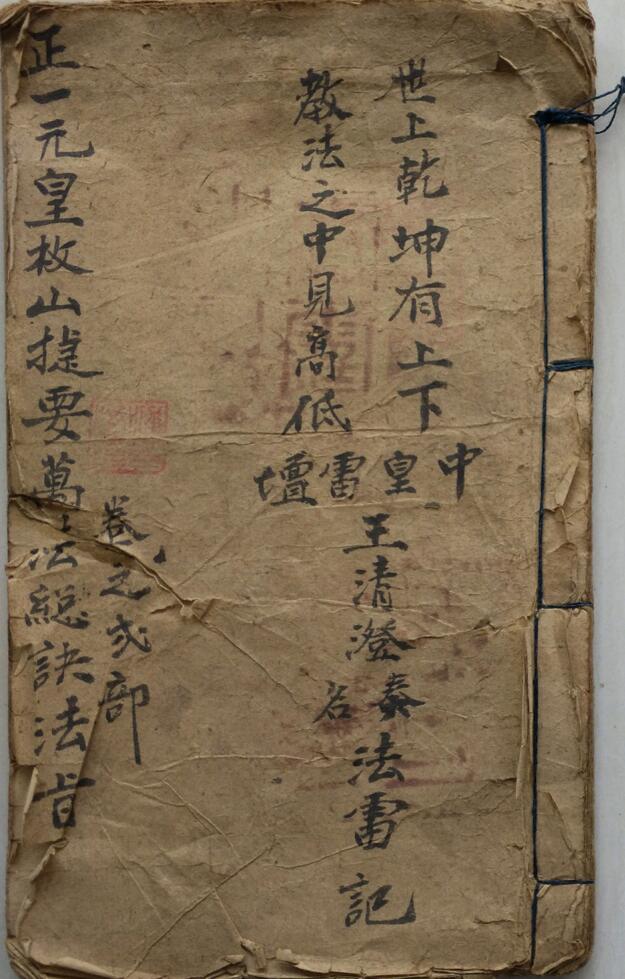 世上乾坤有上下
教法之中見高低
中皇雷壇
王清澄泰名法雷記
卷之弍部
正一元皇枚山捷要萬法總訣法旨